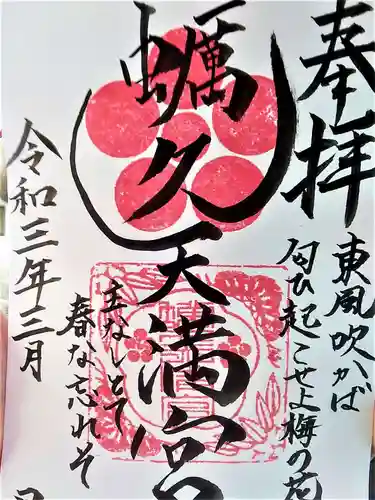 奉拝
東風吹かば
匂ひ起こせよ梅の花
蠣久天満宮
主なしとて
春な忘れそ
令和三年三月